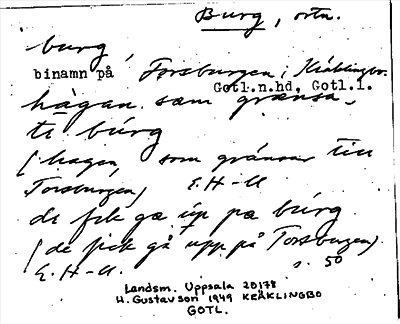 Burg, ortn.
burg,
binamn på Torsburgen, i Kräklingbo.
Gotl.n.hd, Gotl.l.
hagan sam grænsa,
ti búrg
(hagen, som gränsar till
Torsburgen) E.H-U
de fɛk gæ úp pæ búrg
(de fick gå upp på Torsburgen).
E.H-U. s. 50
Landsm. Uppsala 20178
H. Gustavson 1949 KRÄKLINGBO
GOTL.